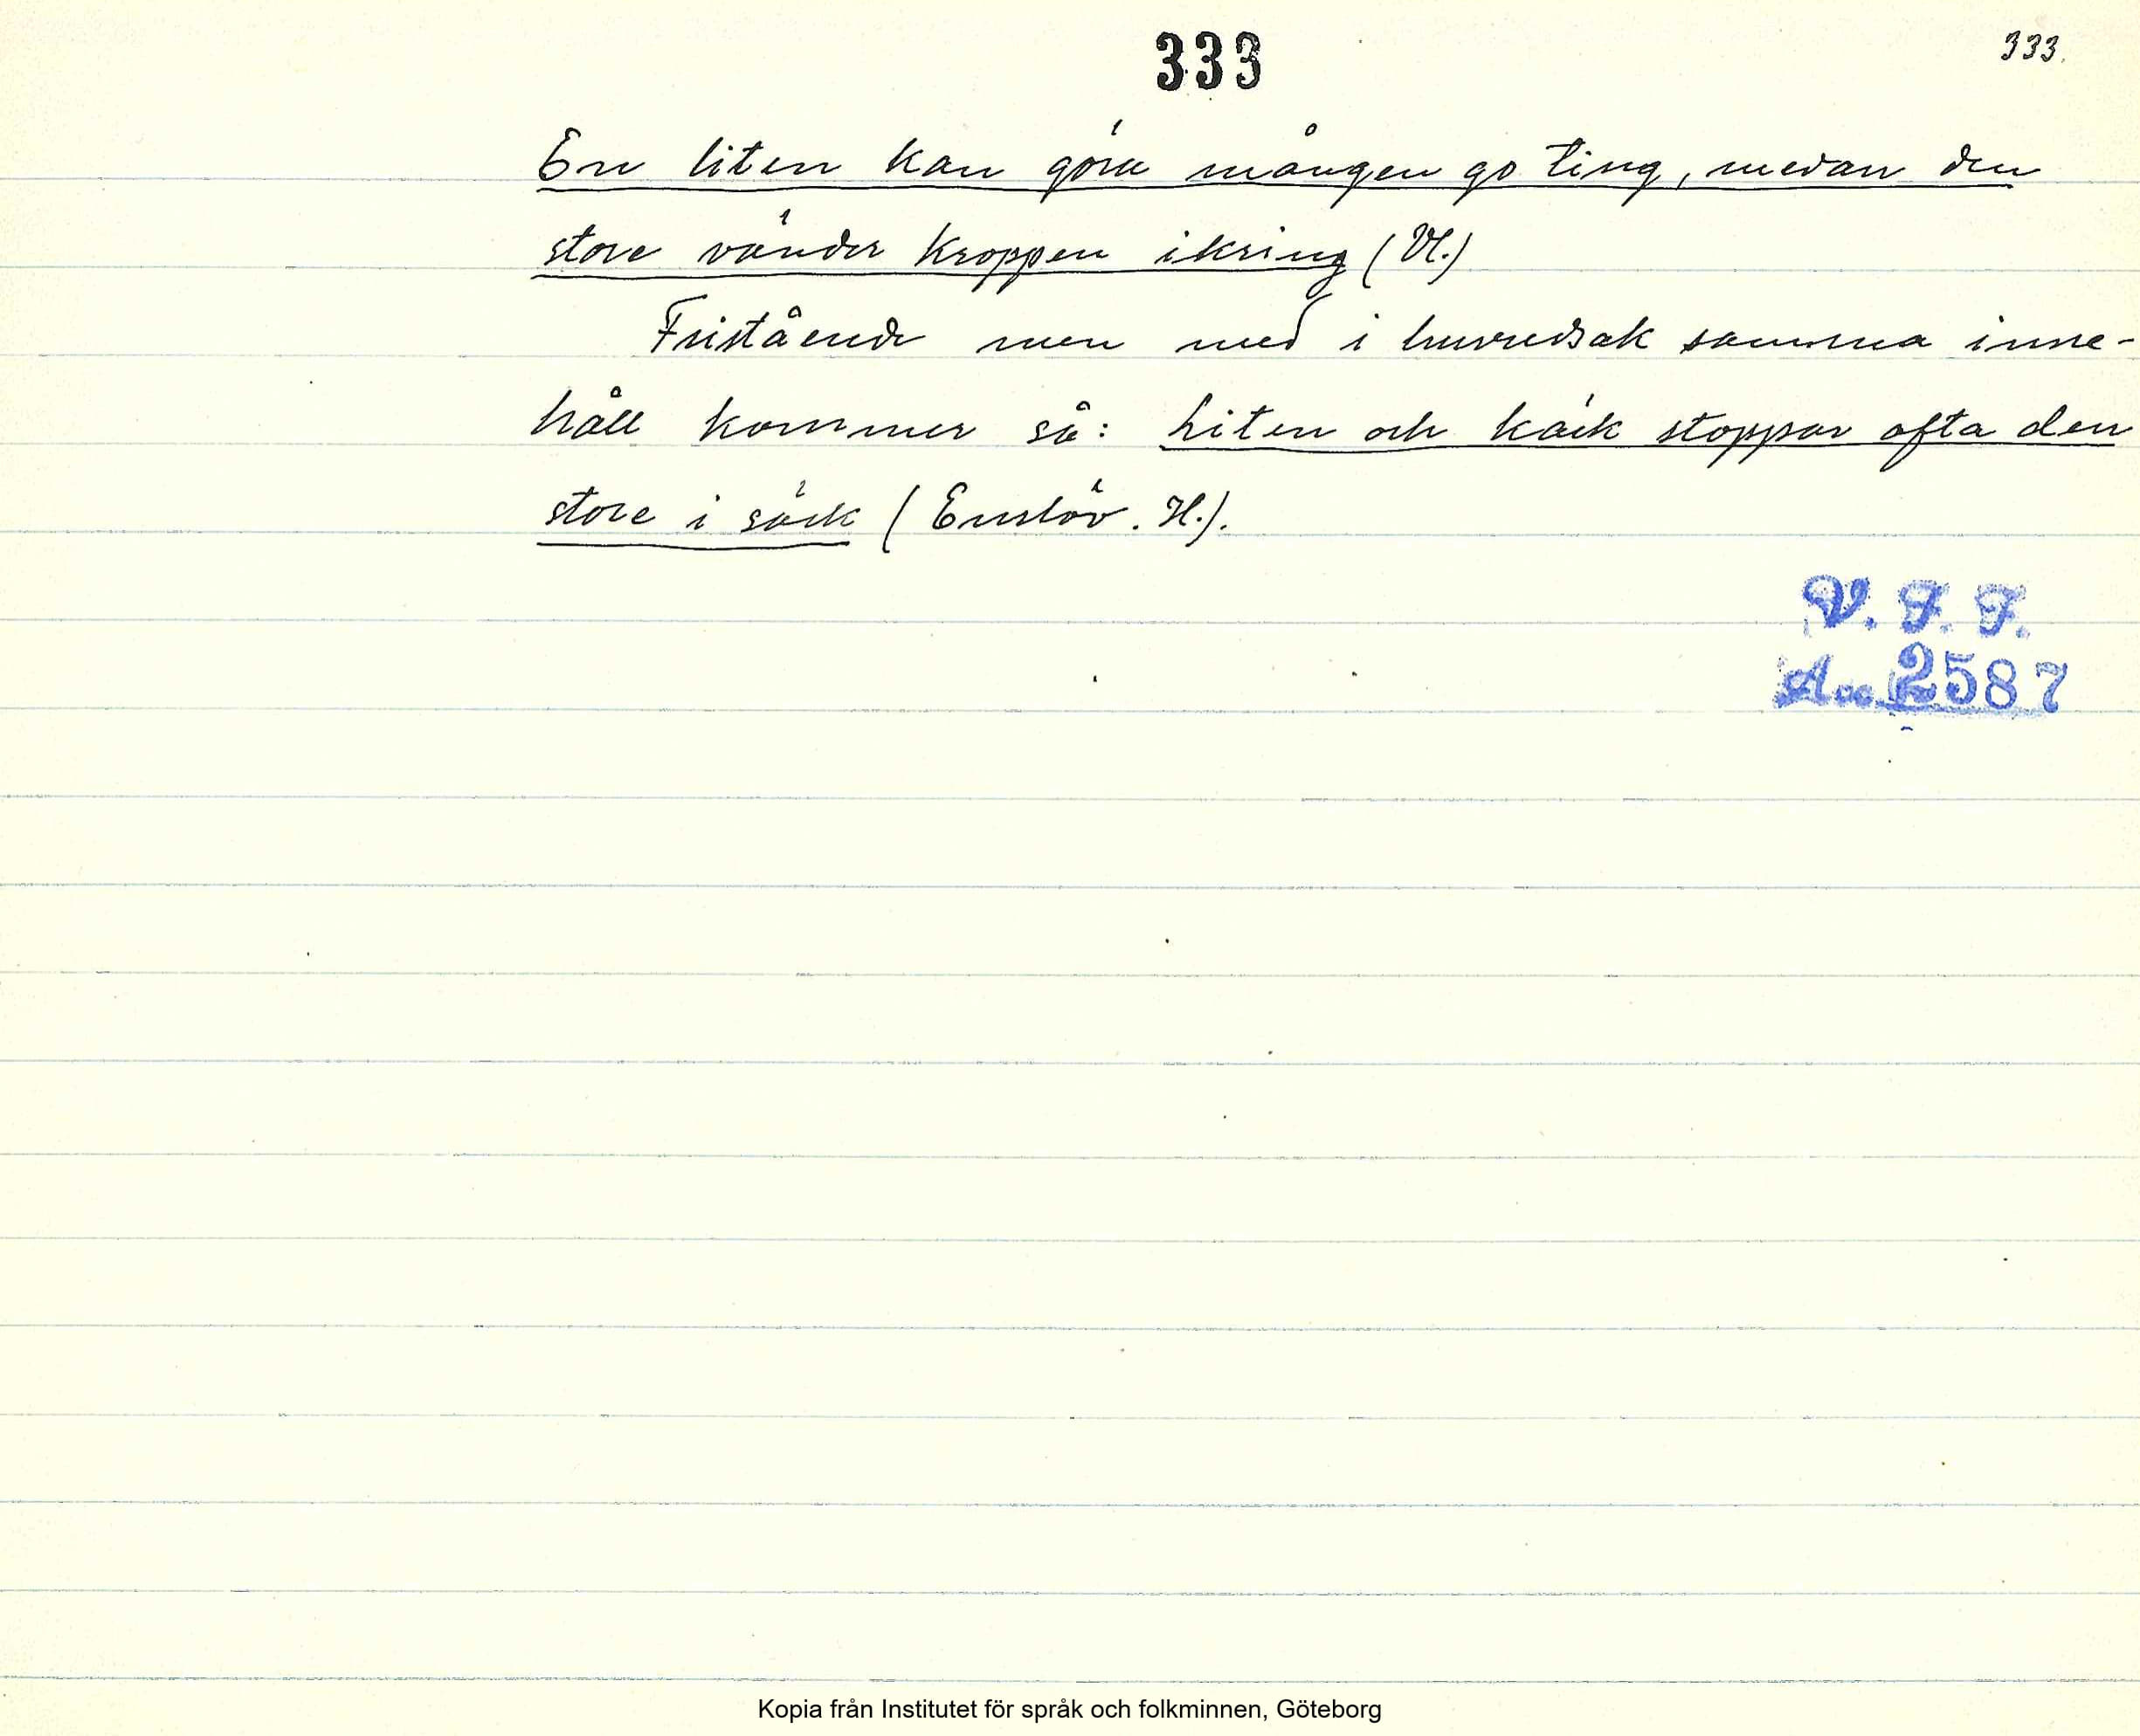 333
333.
En liten kan göra mången go ting, medan den
store vänder kroppen ikring (Vl.)
Fristående men med i huvudsak samma inne-
håll kommer så: Liten och käck stoppar ofta den
store i säck (Enslöv. H.).
V. F. F.
Acc. 2587
Kopia från Institutet för språk och folkminnen, Göteborg